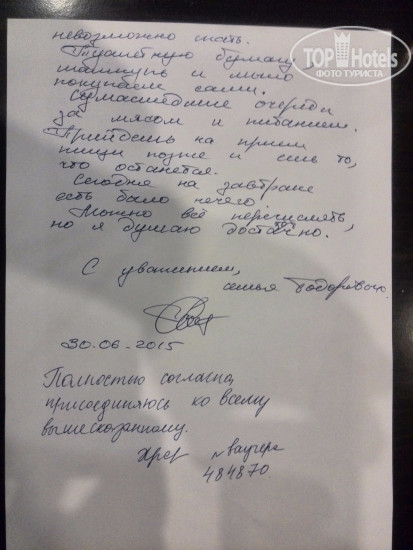 TOP Hotels
ФОТО ТУРИСТА
невозможно спать.
Туалетную бумагу,
шампунь и мыло
покупаем сами.
Сумасшедшие очереди
за мясом и питанием.
Прийдешь на прием
пищи позже и ешь то,
что останется.
Сегодня на завтраке
есть было нечего.
Можно всё перечислять,
но я думаю достаточно.
С уважением,
семья
30.06-2015
Полностью согласна,
присоединяюсь ко всему
вышесказанному.
№ ваучера
484870.